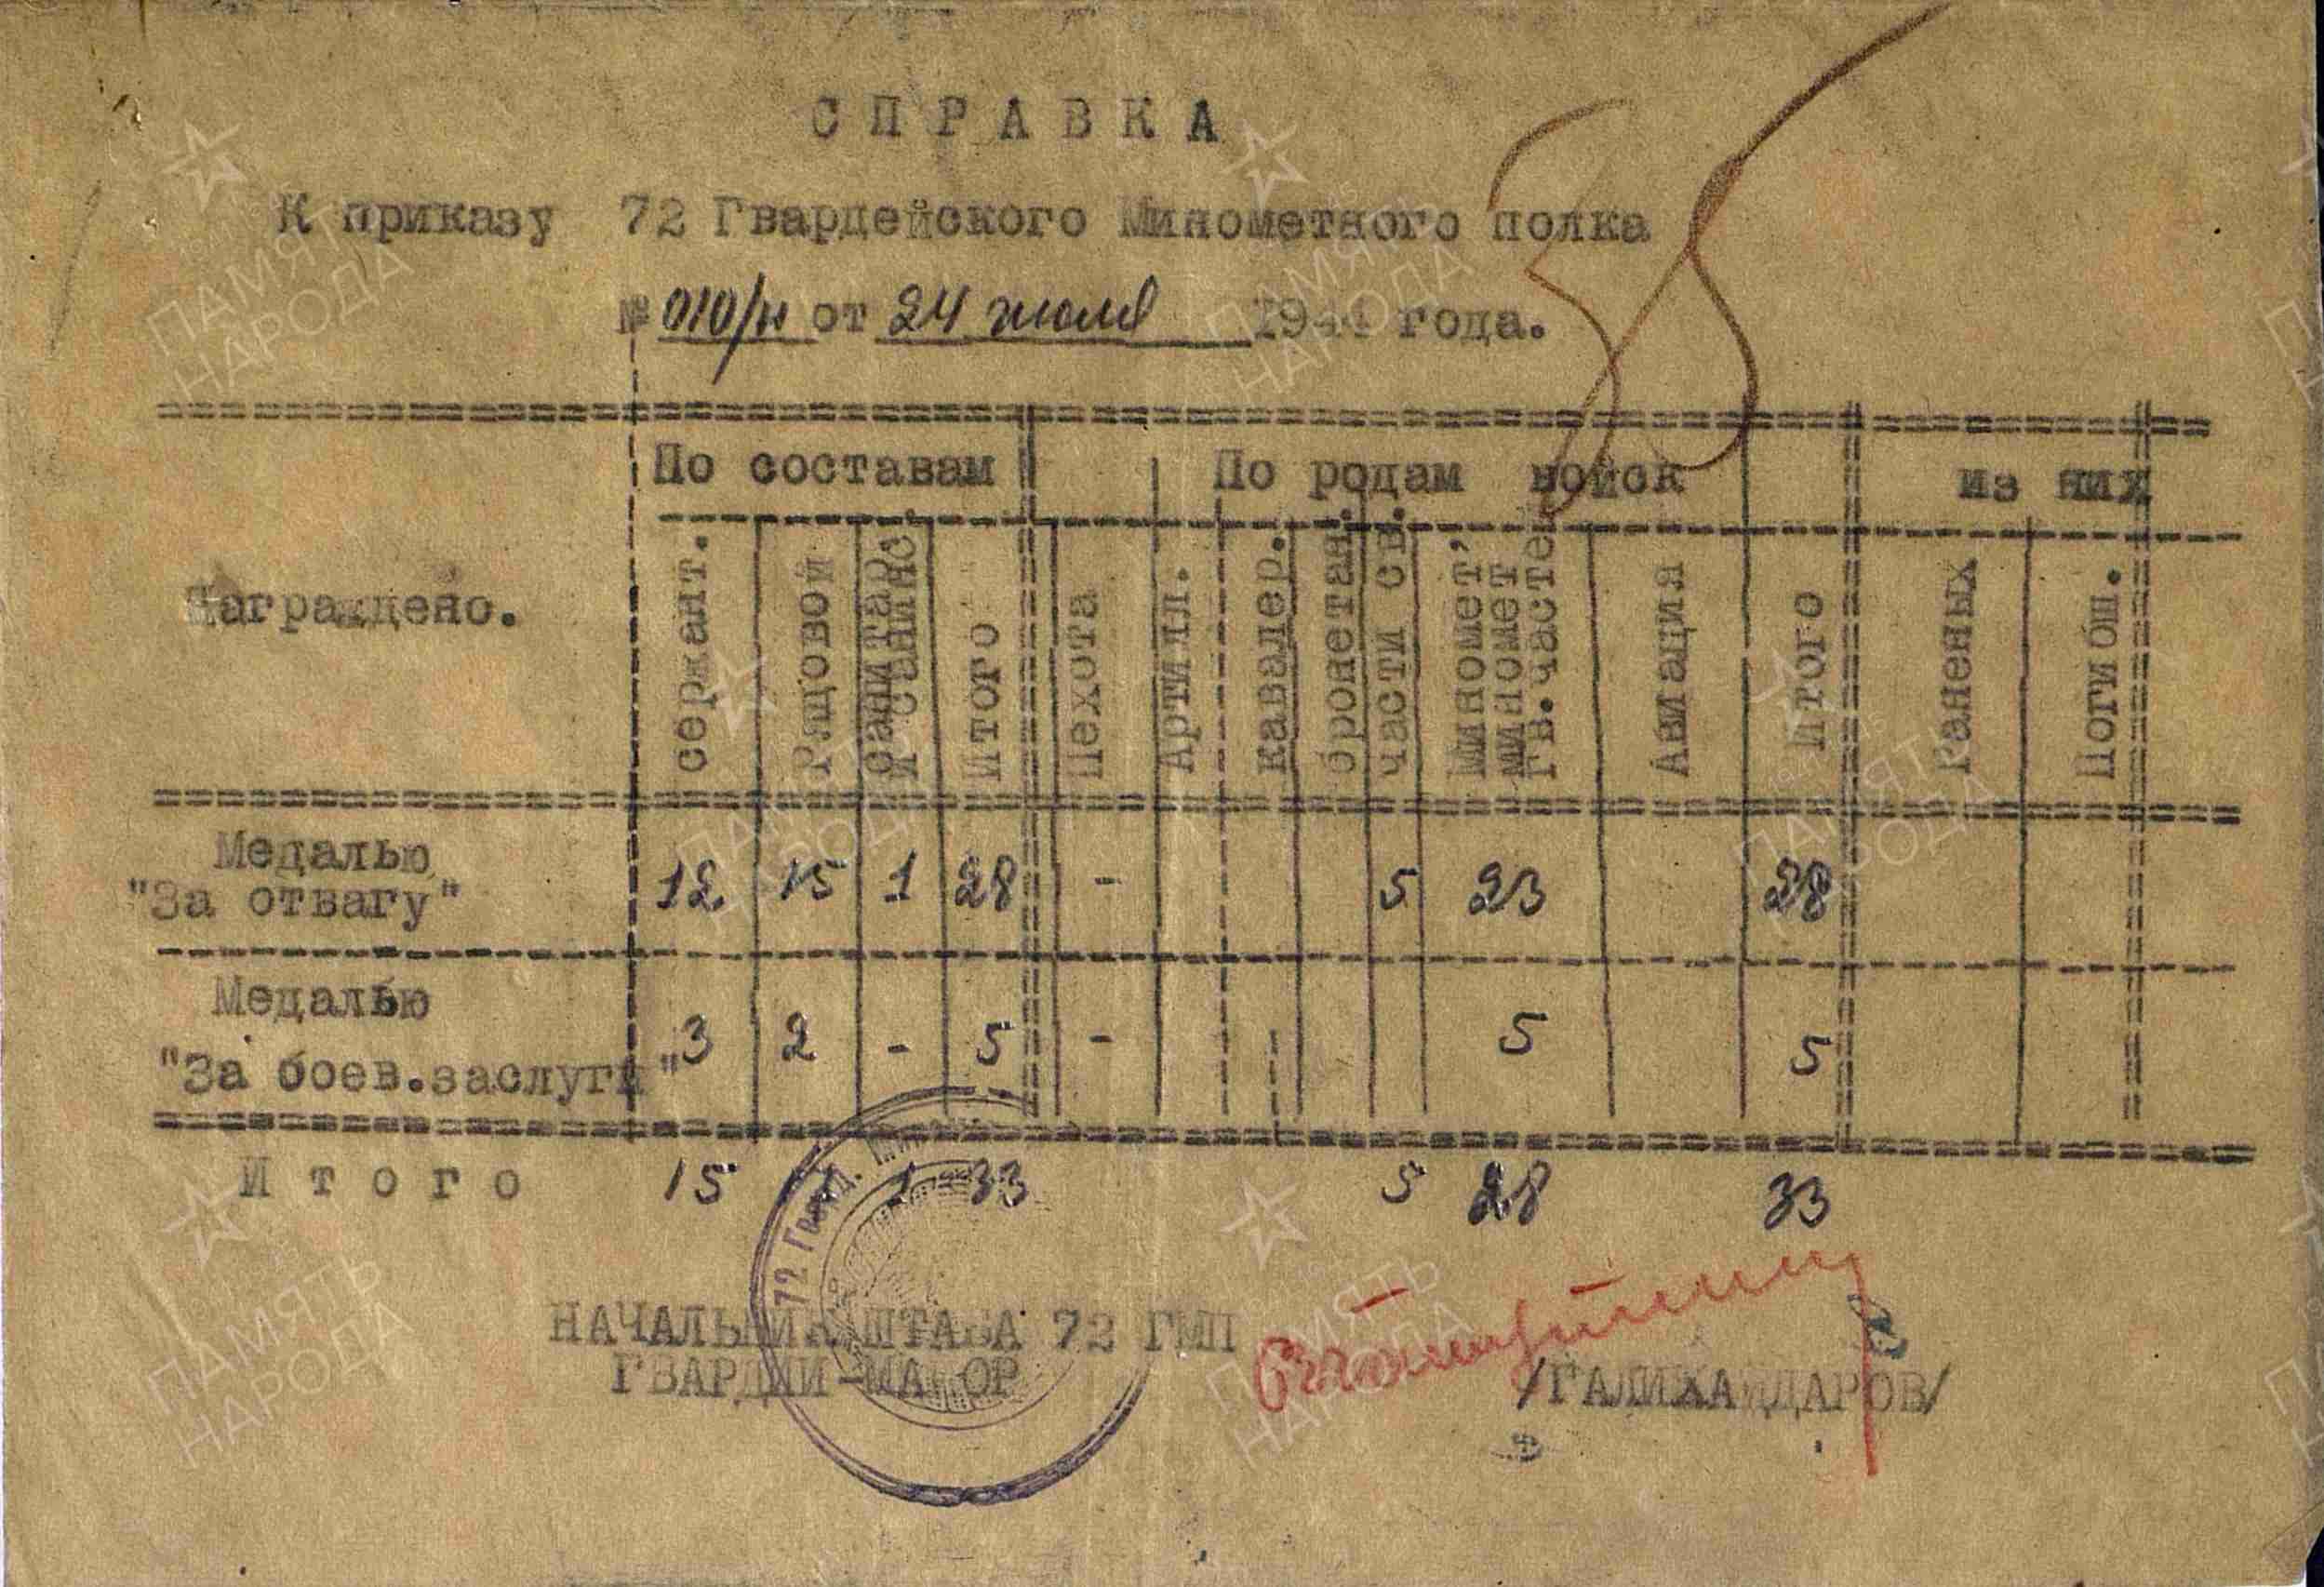 СПРАВКА
К приказу 72 Гвардейского Минометного полка
№ 010/н от 24 июля 1944 года.
По составам По родам войск из них
Награждено. сержант. Рядовой санитар. и санинс. Итого Пехота Артилл. Кавалер. бронетан. части св. Миномет, миномет гв.часте Авиация Итого Раненых Погибш.
Медалью
"За отвагу" 12 15 1 28 - 5 23 28
Медалью
"За боев.заслуги" 3 2 - 5 - 5 5
Итого 15 1 33 5 28 33
72 Гвард.
НАЧАЛЬНИК ШТАБА 72 ГМП
ГВАРДИИ-МАЙОР /ГАЛИХАЙДАРОВ/
ПАМЯТЬ НАРОДА